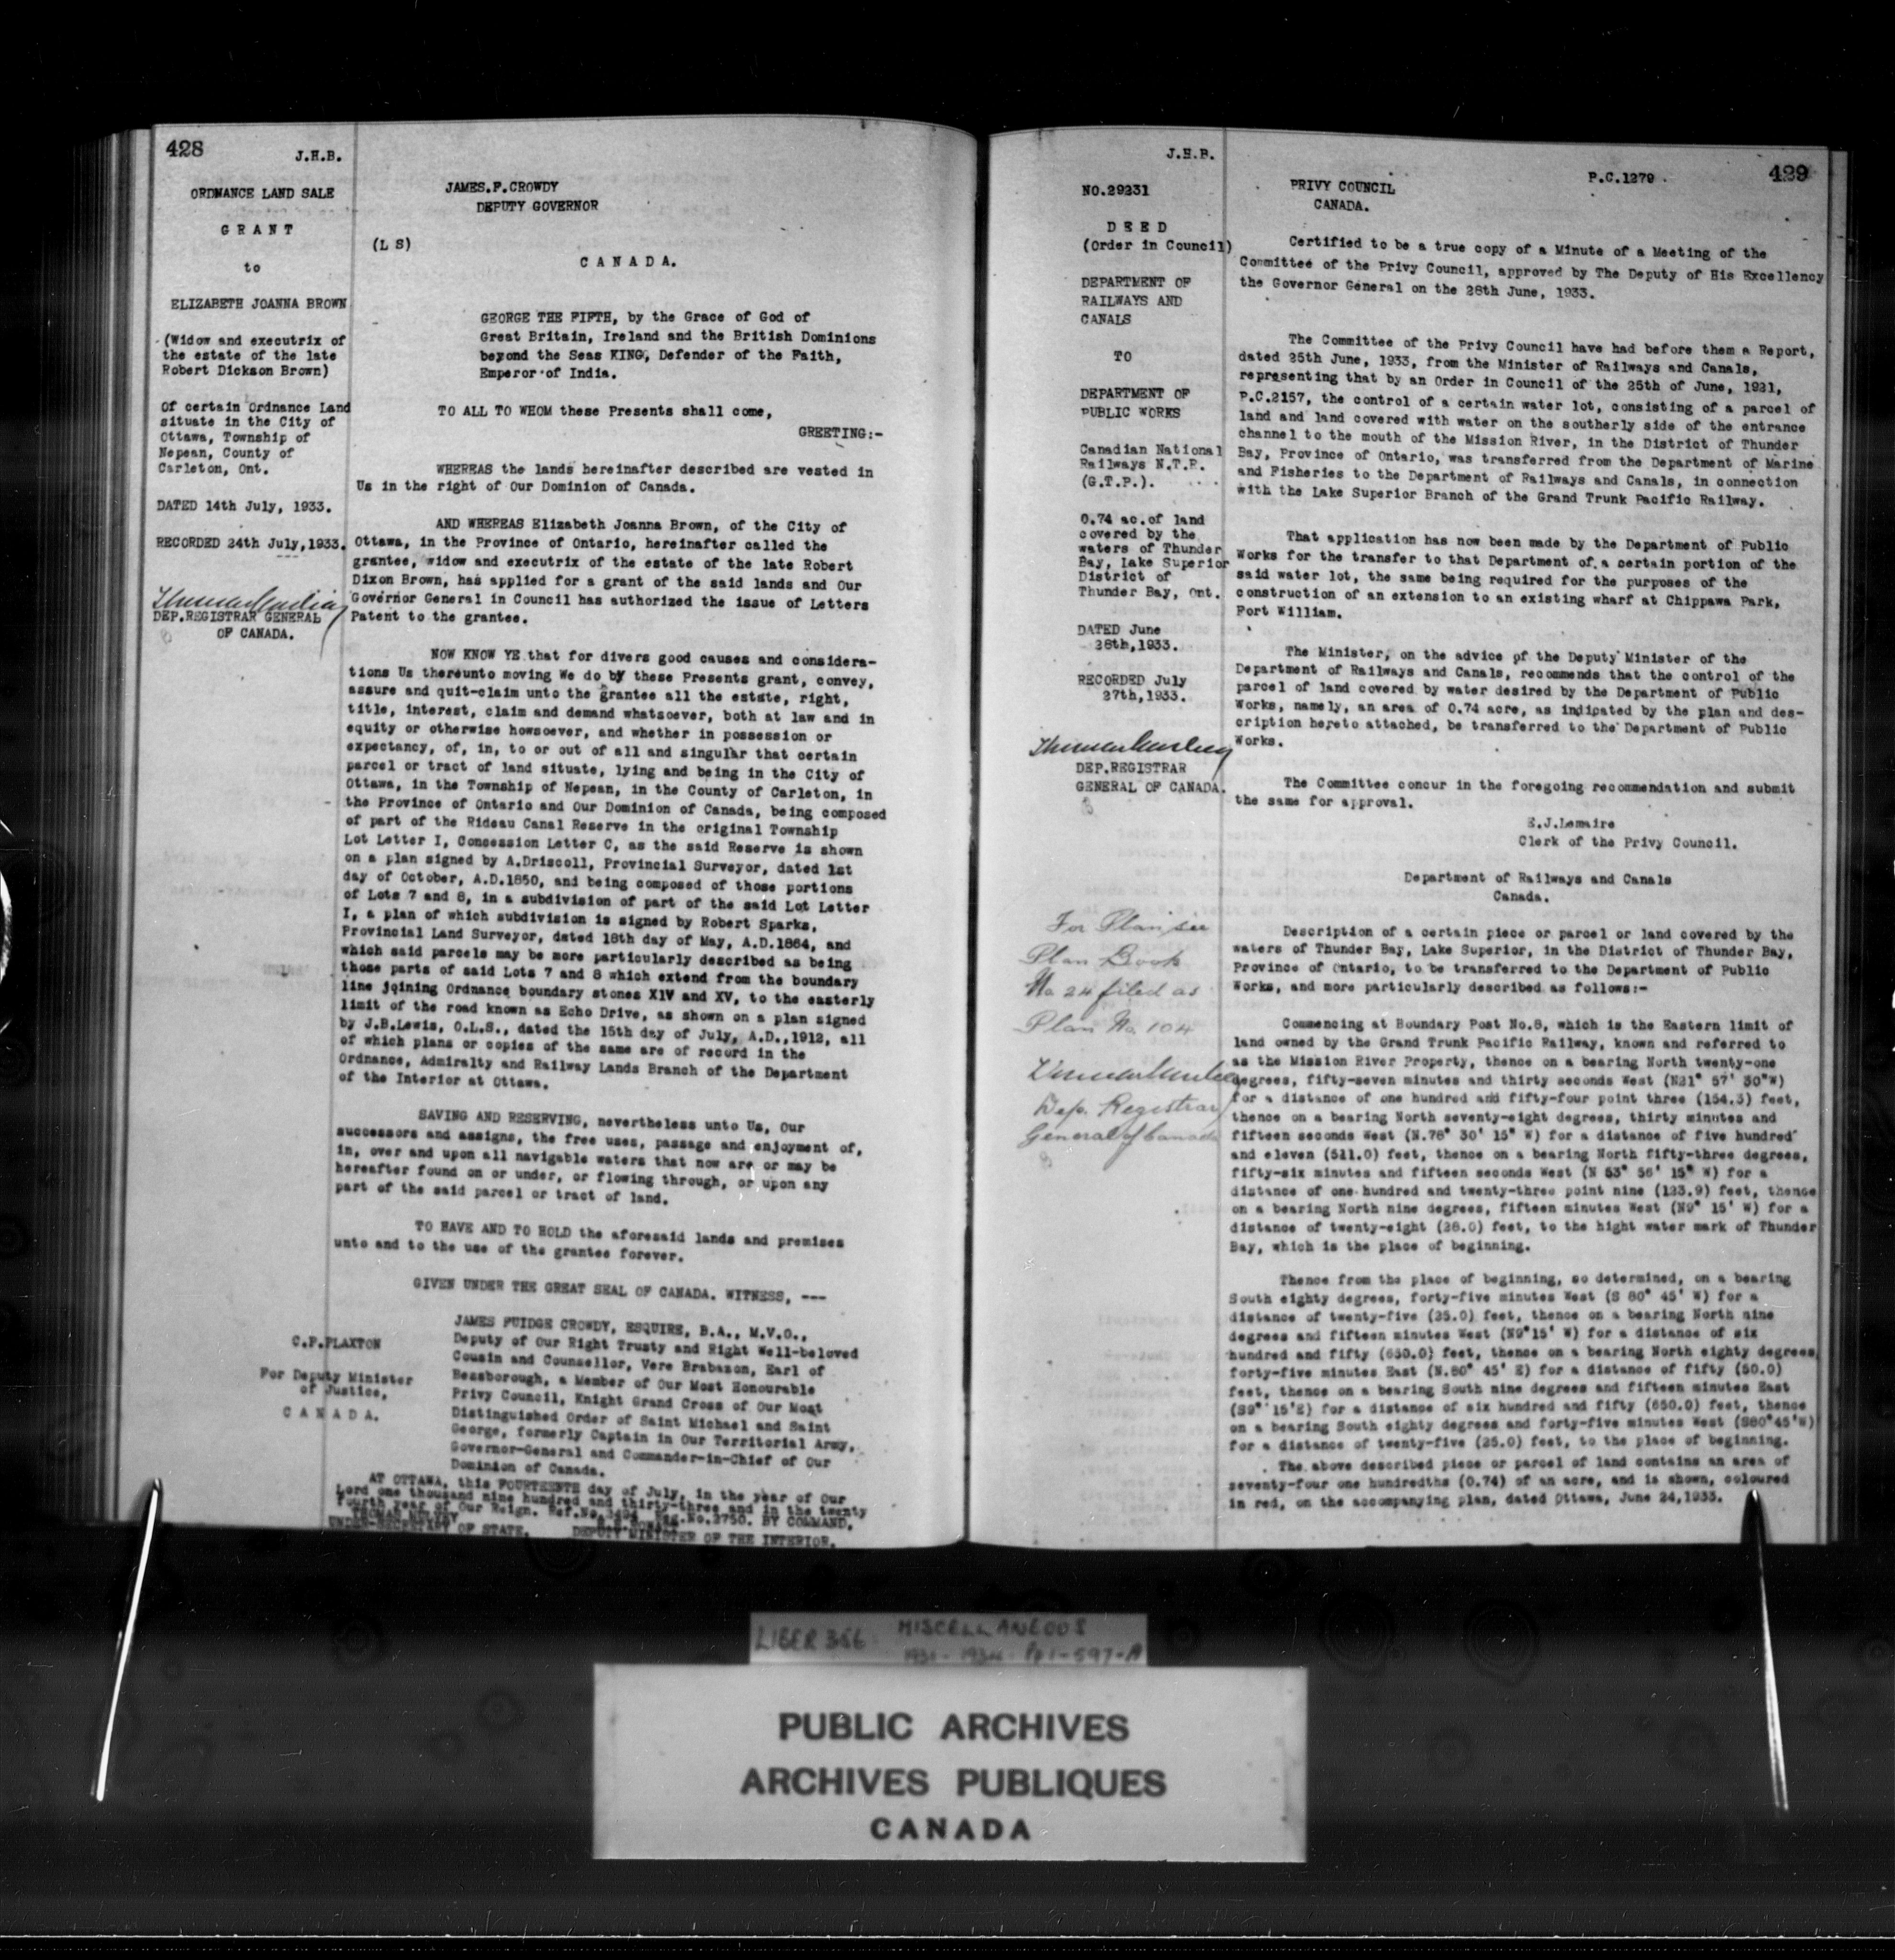 428
J.H.B.
ORDNANCE LAND SALE
G R A N T
to
ELIZABETH JOANNA BROWN
(Widow and executrix of
the estate of the late
Robert Dickson Brown)
Of certain Ordnance Land
situate in the City of
Ottawa, Township of
Nepean, County of
Carleton, Ont.
DATED 14th July, 1933.
RECORDED 24th July,1933.
DEP.REGISTRAR GENERAL
OF CANADA.
JAMES.F.CROWDY
DEPUTY GOVERNOR
(L S)
C A N A D A.
GEORGE THE FIFTH, by the Grace of God of
Great Britain, Ireland and the British Dominions
beyond the Seas KING, Defender of the Faith,
Emperor of India.
TO ALL TO WHOM these Presents shall come,
GREETING:-
WHEREAS the lands hereinafter described are vested in
Us in the right of Our Dominion of Canada.
AND WHEREAS Elizabeth Joanna Brown, of the City of
Ottawa, in the Province of Ontario, hereinafter called the
grantee, widow and executrix of the estate of the late Robert
Dixon Brown, has applied for a grant of the said lands and Our
Governor General in Council has authorized the issue of Letters
Patent to the grantee.
NOW KNOW YE that for divers good causes and considera-
tions Us thereunto moving We do by these Presents grant, convey,
assure and quit-claim unto the grantee all the estate, right,
title, interest, claim and demand whatsoever, both at law and in
equity or otherwise howsoever, and whether in possession or
expectancy, of, in, to or out of all and singular that certain
parcel or tract of land situate, lying and being in the City of
Ottawa, in the Township of Nepean, in the County of Carleton, in
the Province of Ontario and Our Dominion of Canada, being composed
of part of the Rideau Canal Reserve in the original Township
Lot Letter I, Concession Letter C, as the said Reserve is shown
on a plan signed by A.Driscoll, Provincial Surveyor, dated 1st
day of October, A.D.1850, and being composed of those portions
of Lots 7 and 8, in a subdivision of part of the said Lot Letter
I, a plan of which subdivision is signed by Robert Sparks,
Provincial Land Surveyor, dated 18th day of May, A.D.1864, and
which said parcels may be more particularly described as being
those parts of said Lots 7 and 8 which extend from the boundary
line joining Ordnance boundary stones XIV and XV, to the easterly
limit of the road known as Echo Drive, as shown on a plan signed
by J.B.Lewis, O.L.S., dated the 15th day of July, A.D.,1912, all
of which plans or copies of the same are of record in the
Ordnance, Admiralty and Railway Lands Branch of the Department
of the Interior at Ottawa.
SAVING AND RESERVING, nevertheless unto Us, Our
successors and assigns, the free uses, passage and enjoyment of,
in, over and upon all navigable waters that now are or may be
hereafter found on or under, or flowing through, or upon any
part of the said parcel or tract of land.
TO HAVE AND TO HOLD the aforesaid lands and premises
unto and to the use of the grantee forever.
GIVEN UNDER THE GREAT SEAL OF CANADA. WITNESS, ---
JAMES FUIDGE CROWDY, ESQUIRE, B.A., M.V.O.,
Deputy of Our Right Trusty and Right Well-beloved
Cousin and Counsellor, Vere Brabazon, Earl of
Bessborough, a Member of Our Most Honourable
Privy Council, Knight Grand Cross of Our Most
Distinguished Order of Saint Michael and Saint
George, formerly Captain in Our Territorial Army,
Governor-General and Commander-in-Chief of Our
Dominion of Canada.
C.P.PLAXTON
For Deputy Minister
of Justice,
C A N A D A.
AT OTTAWA, this FOURTEENTH day of July, in the year of Our
Lord one thousand nine hundred and thirty-three and in the twenty
fourth year of Our Reign. Ref.No. Reg.No.2750. BY COMMAND.
THOMAS MULVEY
UNDER-SECRETARY OF STATE. DEPUTY MINISTER OF THE INTERIOR.
J.H.B.
NO.29231
D E E D
(Order in Council)
DEPARTMENT OF
RAILWAYS AND
CANALS
TO
DEPARTMENT OF
PUBLIC WORKS
Canadian National
Railways N.T.R.
(G.T.P.).
0.74 ac.of land
covered by the
waters of Thunder
Bay, Lake Superior
District of
Thunder Bay, Ont.
DATED June
28th,1933.
RECORDED July
27th,1933.
DEP.REGISTRAR
GENERAL OF CANADA.
For Plan see
Plan Book
No 24 filed as
Plan No. 104
Dep. Registrar
General of Canada
PRIVY COUNCIL
CANADA.
P.C.1279
429
Certified to be a true copy of a Minute of a Meeting of the
Committee of the Privy Council, approved by The Deputy of His Excellency
the Governor General on the 28th June, 1933.
The Committee of the Privy Council have had before them a Report,
dated 25th June, 1933, from the Minister of Railways and Canals,
representing that by an Order in Council of the 25th of June, 1921,
P.C.2157, the control of a certain water lot, consisting of a parcel of
land and land covered with water on the southerly side of the entrance
channel to the mouth of the Mission River, in the District of Thunder
Bay, Province of Ontario, was transferred from the Department of Marine
and Fisheries to the Department of Railways and Canals, in connection
with the Lake Superior Branch of the Grand Trunk Pacific Railway.
That application has now been made by the Department of Public
Works for the transfer to that Department of a certain portion of the
said water lot, the same being required for the purposes of the
construction of an extension to an existing wharf at Chippawa Park,
Fort William.
The Minister, on the advice of the Deputy Minister of the
Department of Railways and Canals, recommends that the control of the
parcel of land covered by water desired by the Department of Public
Works, namely, an area of 0.74 acre, as indicated by the plan and des-
cription hereto attached, be transferred to the Department of Public
Works.
The Committee concur in the foregoing recommendation and submit
the same for approval.
E.J.Lemaire
Clerk of the Privy Council.
Department of Railways and Canals
Canada.
Description of a certain piece or parcel or land covered by the
waters of Thunder Bay, Lake Superior, in the District of Thunder Bay,
Province of Ontario, to be transferred to the Department of Public
Works, and more particularly described as follows:-
Commencing at Boundary Post No.8, which is the Eastern limit of
land owned by the Grand Trunk Pacific Railway, known and referred to
as the Mission River Property, thence on a bearing North twenty-one
degrees, fifty-seven minutes and thirty seconds West (N21° 57' 30"W)
for a distance of one hundred and fifty-four point three (154.3) feet,
thence on a bearing North seventy-eight degrees, thirty minutes and
fifteen seconds West (N.78° 30' 15" W) for a distance of five hundred
and eleven (511.0) feet, thence on a bearing North fifty-three degrees,
fifty-six minutes and fifteen seconds West (N 53° 56' 15" W) for a
distance of one hundred and twenty-three point nine (123.9) feet, thence
on a bearing North nine degrees, fifteen minutes West (N9° 15' W) for a
distance of twenty-eight (28.0) feet, to the hight water mark of Thunder
Bay, which is the place of beginning.
Thence from the place of beginning, so determined, on a bearing
South eighty degrees, forty-five minutes West (S 80° 45' W) for a
distance of twenty-five (25.0) feet, thence on a bearing North nine
degrees and fifteen minutes West (N9°15' W) for a distance of six
hundred and fifty (650.0) feet, thence on a bearing North eighty degrees,
forty-five minutes East (N.80° 45' E) for a distance of fifty (50.0)
feet, thence on a bearing South nine degrees and fifteen minutes East
(S9° 15'E) for a distance of six hundred and fifty (650.0) feet, thence
on a bearing South eighty degrees and forty-five minutes West (S80°45'W)
for a distance of twenty-five (25.0) feet, to the place of beginning.
The above described piece or parcel of land contains an area of
seventy-four one hundredths (0.74) of an acre, and is shown, coloured
in red, on the accompanying plan, dated Ottawa, June 24,1933.
LIBER 366 MISCELLANEOUS
1931-1934 Pp 1-597-A
PUBLIC ARCHIVES
ARCHIVES PUBLIQUES
CANADA